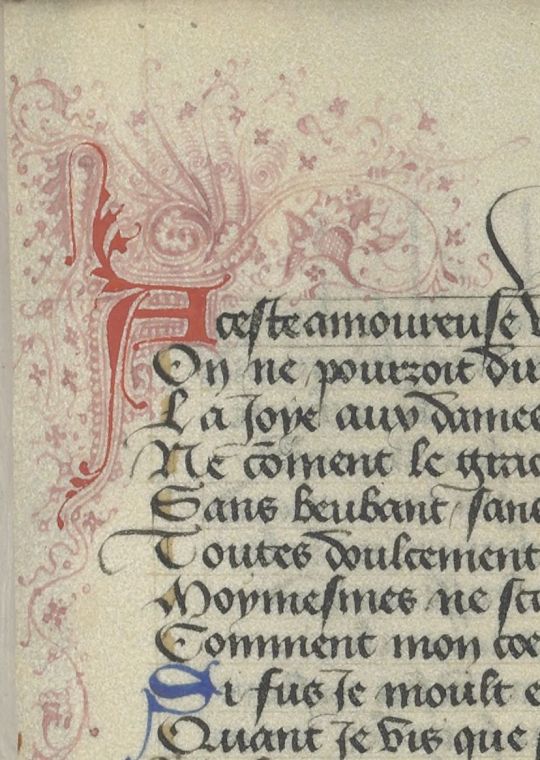 A ceste amoureuse v
On ne pourroit du
La Joye aux dames
Ne cōment le grac
Sans beubant sans
Toutes doulcement
Moymesmes ne sca
Comment mon coe
Si fus Je moult e
Quant Je vis que